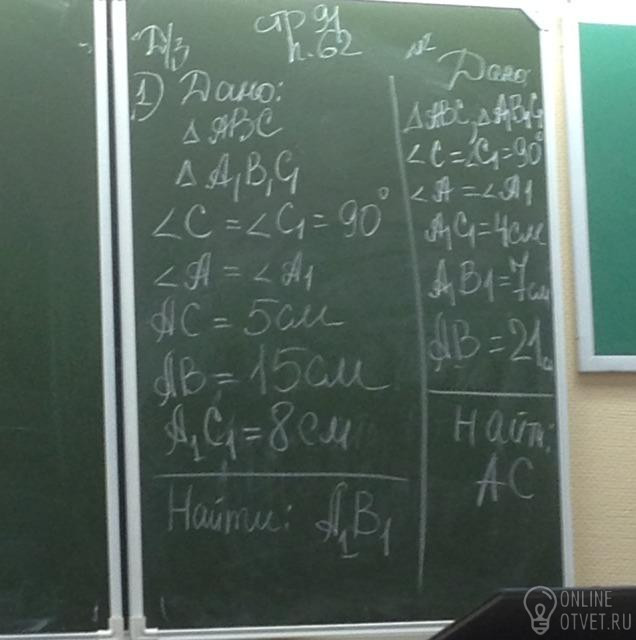 Д/З
стр 91
п. 62
1) Дано:
△ ABC
△ A₁B₁C₁
∠C = ∠C₁ = 90°
∠A = ∠A₁
AC = 5см
AB = 15см
A₁C₁ = 8см
Найти: A₁B₁
№2
Дано:
△ABC, △A₁B₁C₁
∠C = ∠C₁ = 90°
∠A = ∠A₁
A₁C₁ = 4см
A₁B₁ = 7см
AB = 21
Найт:
AC
ONLINE
OTVET.RU